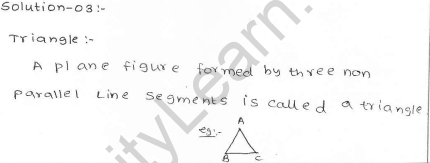 Solution-03:-
Triangle :-
A plane figure formed by three non
Parallel Line Segments is called a triangle
eg:-
A
B C
ityLearn.